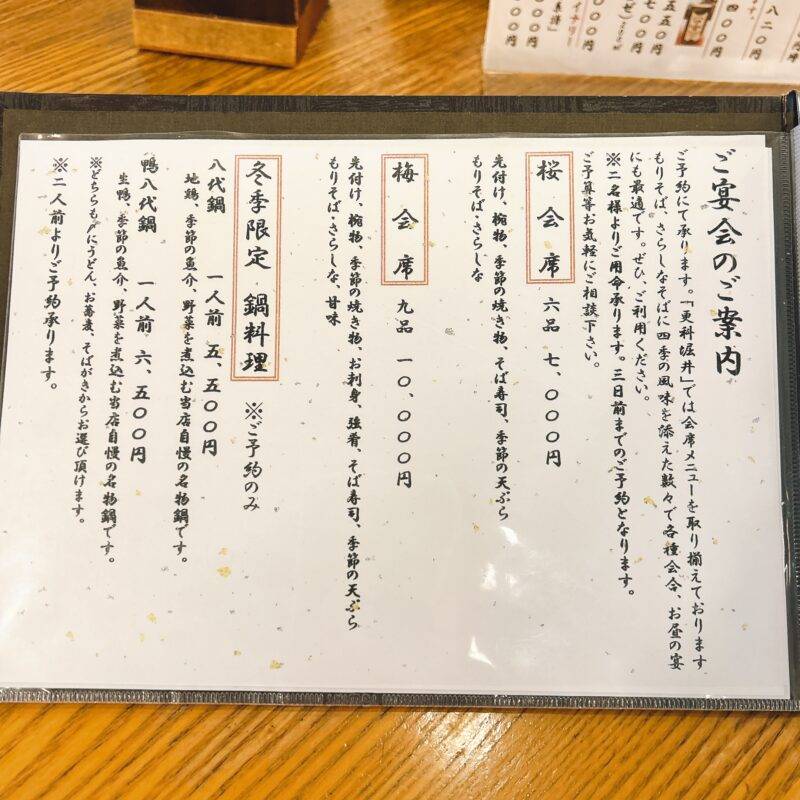 ご宴会のご案内
ご予約にて承ります。「更科堀井」では会席メニューを取り揃えております
もりそば、さらしなそばに四季の風味を添えた数々で各種会合、お昼の宴
にも最適です。ぜひ、ご利用ください。
※二名様よりご用命承ります。三日前までのご予約となります。
ご予算等お気軽にご相談下さい。
桜会席 六品 七、〇〇〇円
先付け、椀物、季節の焼き物、そば寿司、季節の天ぷら
もりそば・さらしな
梅会席 九品 一〇、〇〇〇円
先付け、椀物、季節の焼き物、お刺身、強肴、そば寿司、季節の天ぷら
もりそば・さらしな、甘味
冬季限定 鍋料理 ※ご予約のみ
八代鍋 一人前 五、五〇〇円
地鶏、季節の魚介、野菜を煮込む当店自慢の名物鍋です。
鴨八代鍋 一人前 六、五〇〇円
生鴨、季節の魚介、野菜を煮込む当店自慢の名物鍋です。
※どちらも〆にうどん、お蕎麦、そばがきからお選び頂けます。
※二人前よりご予約承ります。